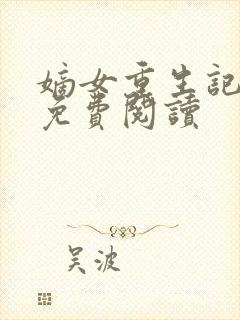 嫡女重生記
免費閱讀
吴波